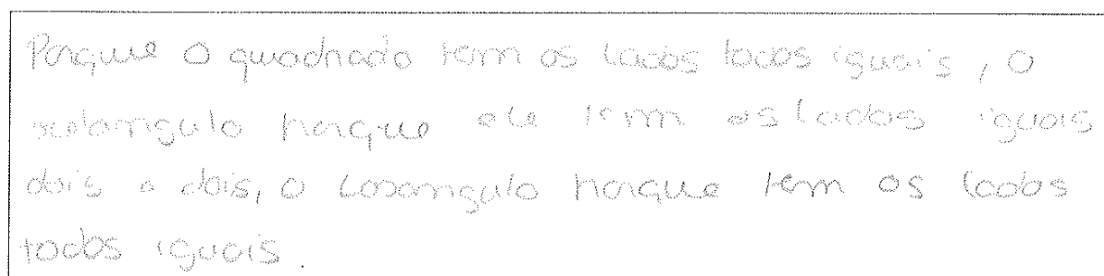 Porque o quadrado tem os lados todos iguais, o
retângulo porque ele tem os lados iguais
dois a dois, o Losangulo porque tem os lados
todos iguais.